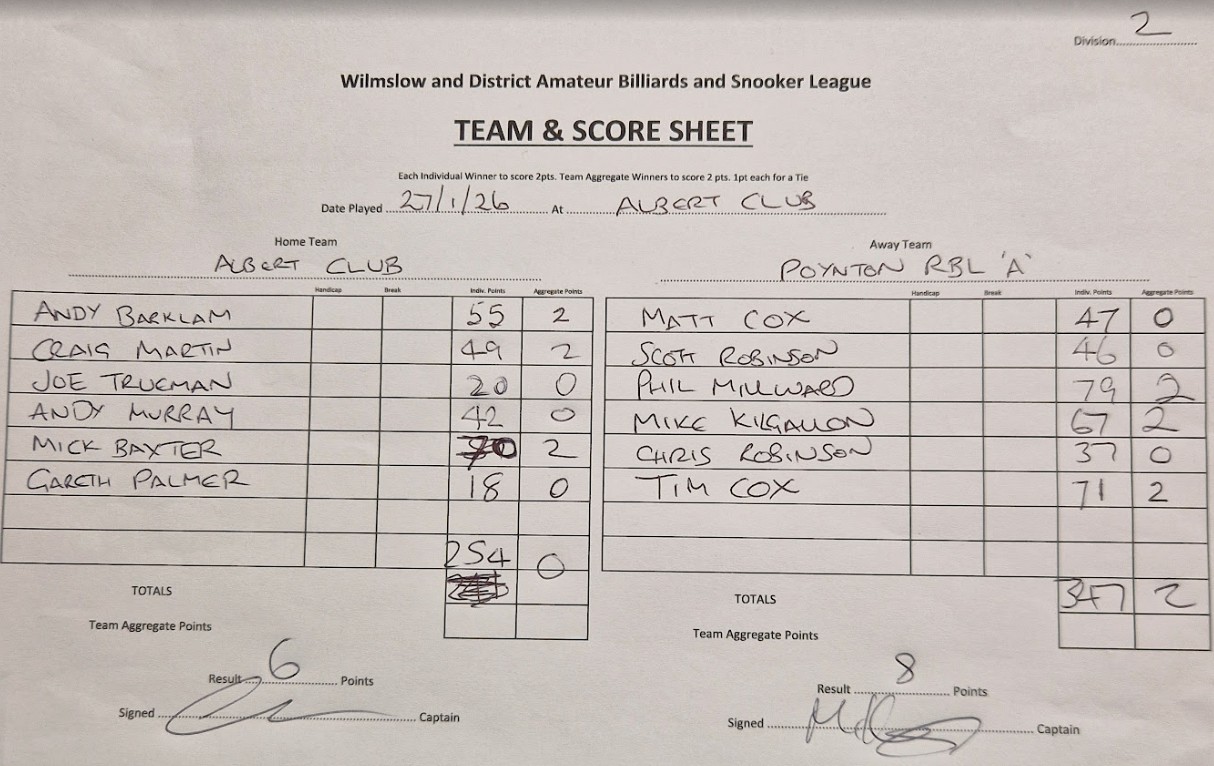 Division 2
Wilmslow and District Amateur Billiards and Snooker League
TEAM & SCORE SHEET
Each Individual Winner to score 2pts. Team Aggregate Winners to score 2 pts. 1pt each for a Tie
Date Played 27/1/26 At ALBERT CLUB
Home Team
ALBERT CLUB
Away Team
POYNTON RBL 'A'
Handicap Break Indiv. Points Aggregate Points
Handicap Break Indiv. Points Aggregate Points
ANDY BARKLAM 55 2
MATT COX 47 0
CRAIG MARTIN 49 2
SCOTT ROBINSON 46 0
JOE TRUEMAN 20 0
PHIL MILLWARD 79 2
ANDY MURRAY 42 0
MIKE KILGALLON 67 2
MICK BAXTER 70 2
CHRIS ROBINSON 37 0
GARETH PALMER 18 0
TIM COX 71 2
254 0
TOTALS
TOTALS 347 2
Team Aggregate Points
Team Aggregate Points
Result 6 Points
Result 8 Points
Signed Captain
Signed Captain